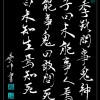 季路問事鬼神
子曰未能事人焉能
事鬼敢問死
曰未知生焉知死